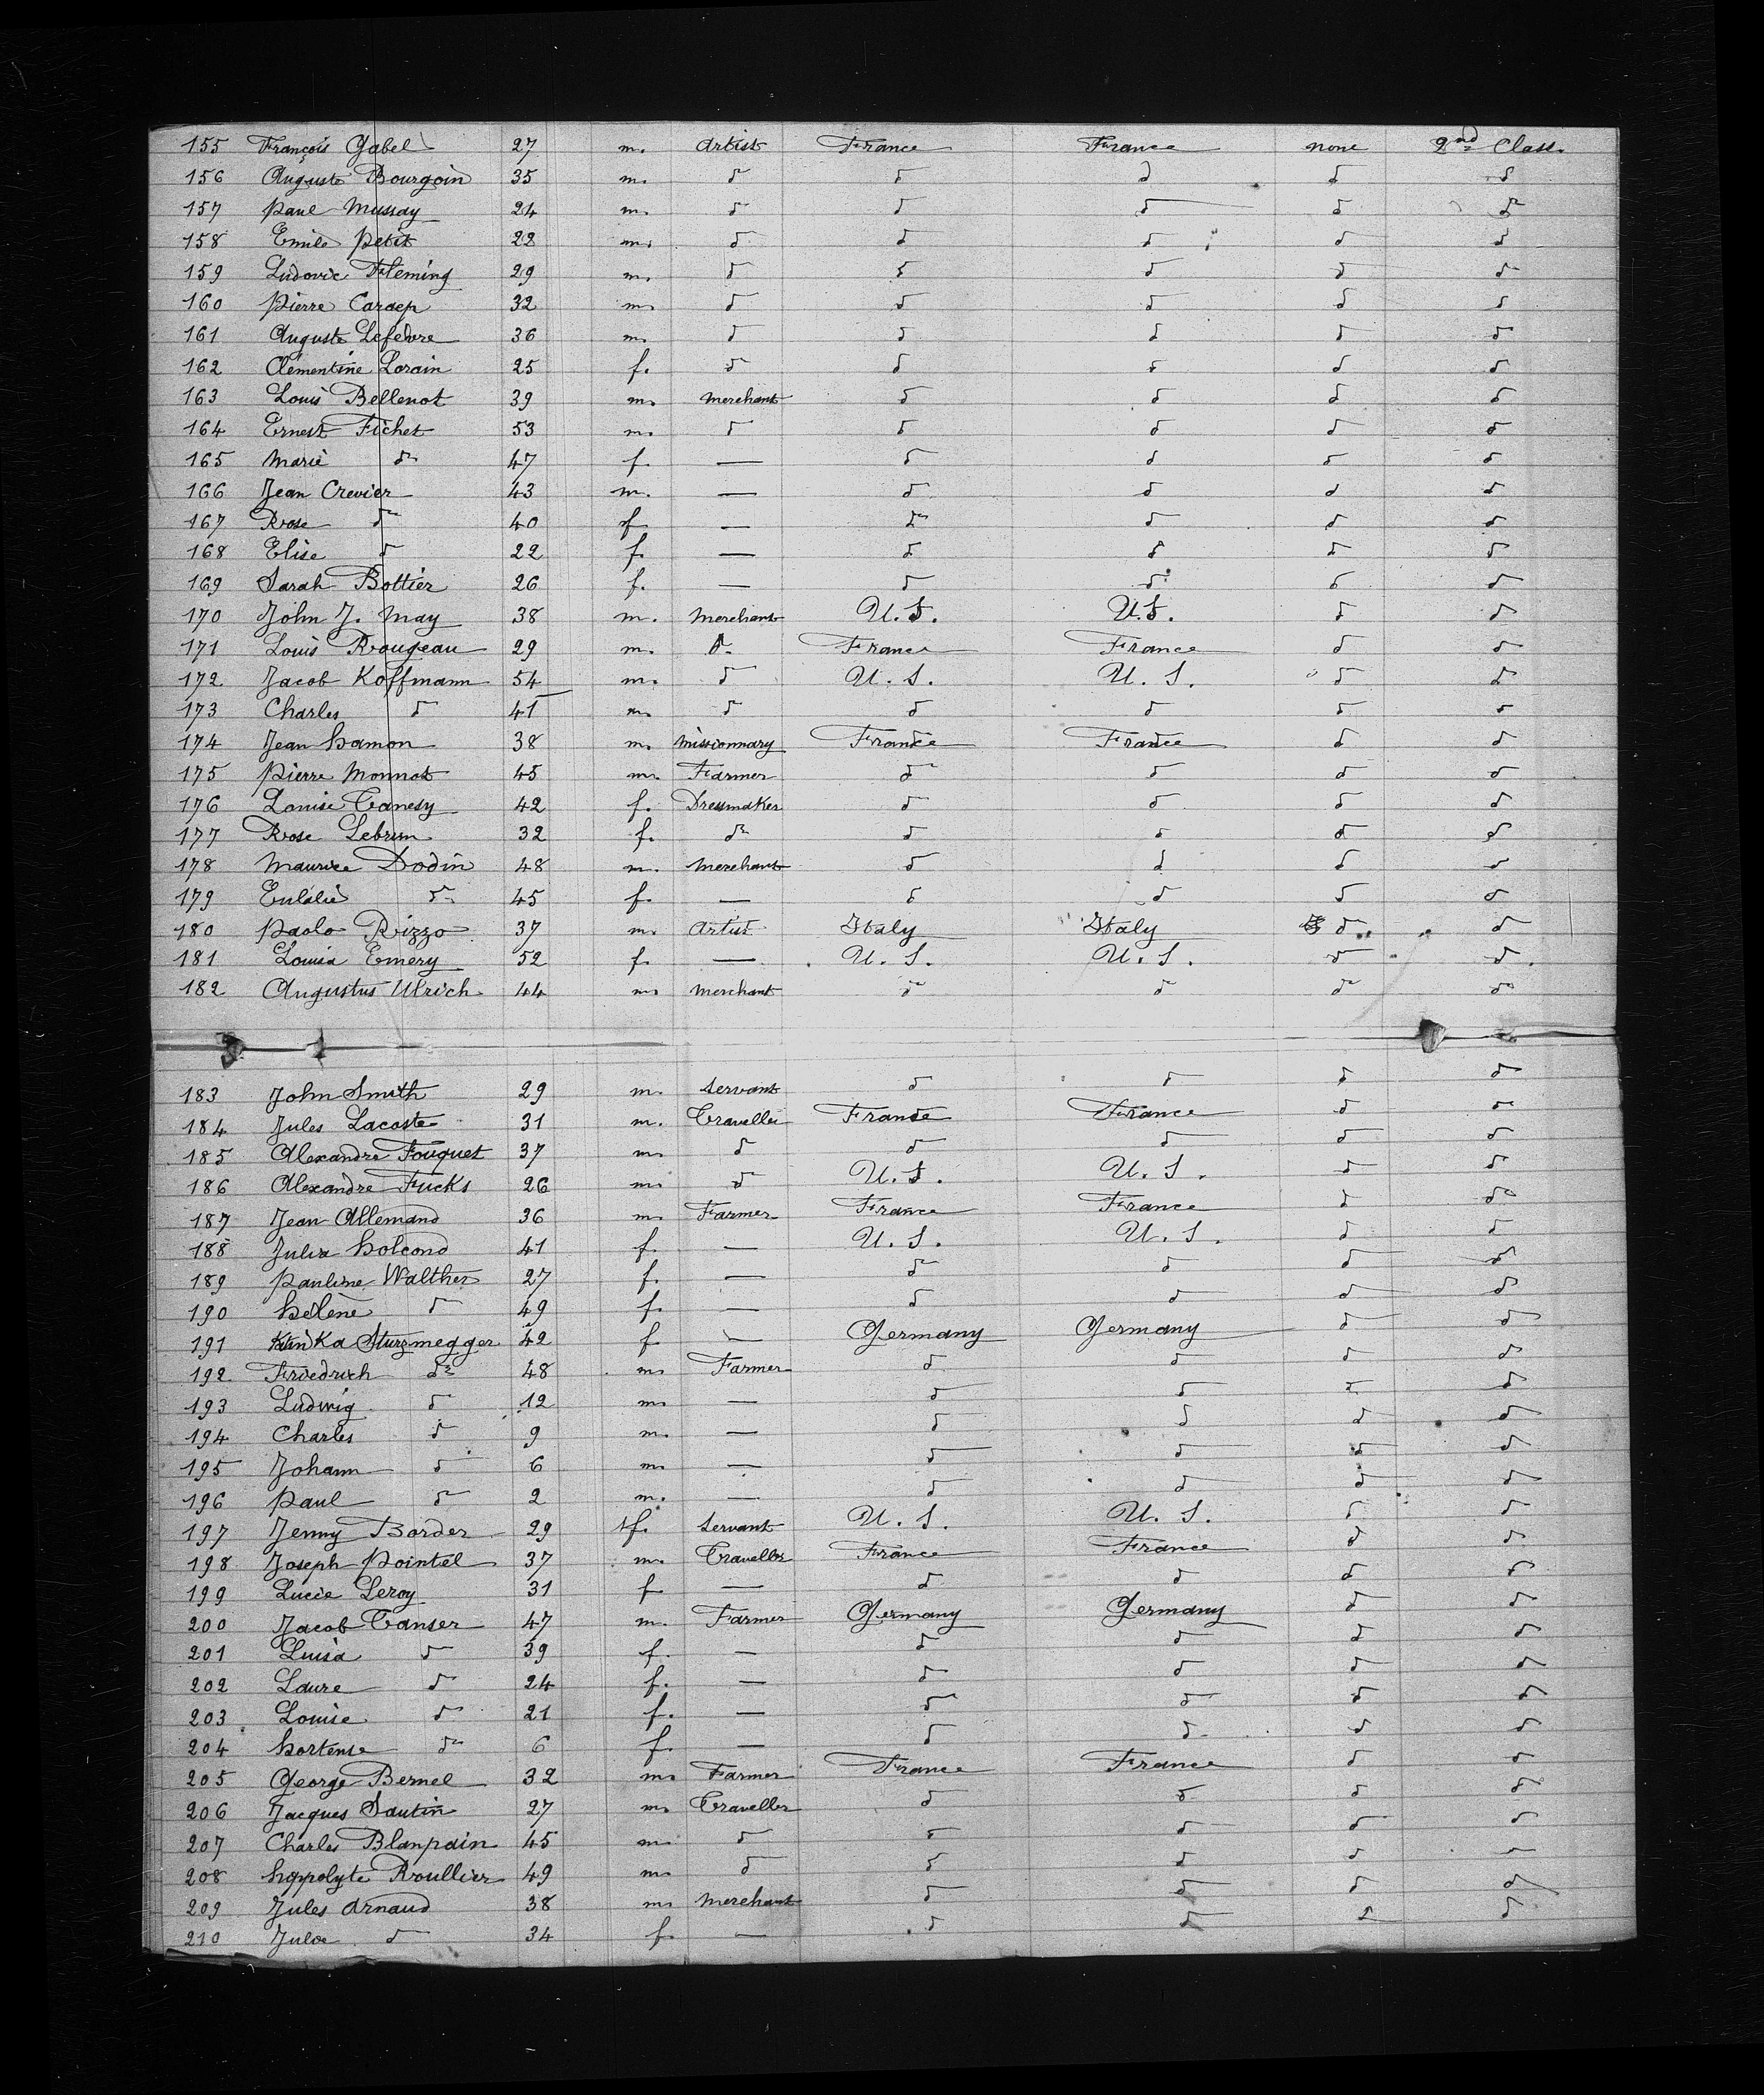 155 François Gabel 27 m. Artist France France none 2nd Class.
156 Auguste Bourgoin 35 m. do do do do do
157 Paul Mussay 24 m. do do do do do
158 Emile Petit 22 m. do do do do do
159 Ludovic Fleming 29 m. do do do do do
160 Pierre 32 m. do do do do do
161 Auguste Lefebvre 36 m. do do do do do
162 Clémentine Lorain 25 f. do do do do do
163 Louis Bellenot 39 m. Merchant do do do do
164 Ernest Fichet 53 m. do do do do do
165 Marie do 47 f. — do do do do
166 Jean Crevier 43 m. — do do do do
167 Rose do 40 f — do do do do
168 Elise do 22 f. — do do do do
169 Sarah Bottier 26 f. — do do do do
170 John J. May 38 m. Merchant U.S. U.S. do do
171 Louis Rougeau 29 m. do France France do do
172 Jacob Koffmann 54 m. do U. S. U. S. do do
173 Charles do 41 m. do do do do do
174 Jean Hamon 38 m. Missionnary France France do do
175 Pierre Monnot 45 m. Farmer do do do do
176 Louise Tanesy 42 f. Dressmaker do do do do
177 Rose Lebrun 32 f. do do do do do
178 Maurice Dodin 48 m. Merchant do do do do
179 Eulalie do 45 f. — do do do do
180 Paolo Rizzo 37 m. Artist Italy Italy do do
181 Louisa Emery 52 f. — U. S. U. S. do do
182 Augustus Ulrich 44 m. Merchant do do do do
183 John Smith 29 m. Servant do do do do
184 Jules Lacoste 31 m. Traveller France France do do
185 Alexandre Fouquet 37 m. do do do do do
186 Alexandre Fucks 26 m. do U. S. U. S. do do
187 Jean Allemand 36 m. Farmer France France do do
188 Julia Holcond 41 f. — U. S. U. S. do do
189 Pauline Walther 27 f. — do do do do
190 Hélène do 49 f. — do do do do
191 Sturzmegger 42 f. — Germany Germany do do
192 Friedrich do 48 m. Farmer do do do do
193 Ludwig do 12 m. — do do do do
194 Charles do 9 m. — do do do do
195 Johann do 6 m. — do do do do
196 Paul do 2 m. — do do do do
197 Jenny Border 29 f. Servant U. S. U. S. do do
198 Joseph Pointel 37 m. Traveller France France do do
199 Lucie Leroy 31 f — do do do do
200 Jacob Tanser 47 m. Farmer Germany Germany do do
201 Luisa do 39 f. — do do do do
202 Laure do 24 f. — do do do do
203 Louise do 21 f. — do do do do
204 Hortense do 6 f. — do do do do
205 George Bernel 32 m. Farmer France France do do
206 Jacques Sautin 27 m. Traveller do do do do
207 Charles Blanpain 45 m. do do do do do
208 Hyppolyte Roullier 49 m. do do do do do
209 Jules Arnaud 38 m. Merchant do do do do
210 Julie do 34 f. — do do do do